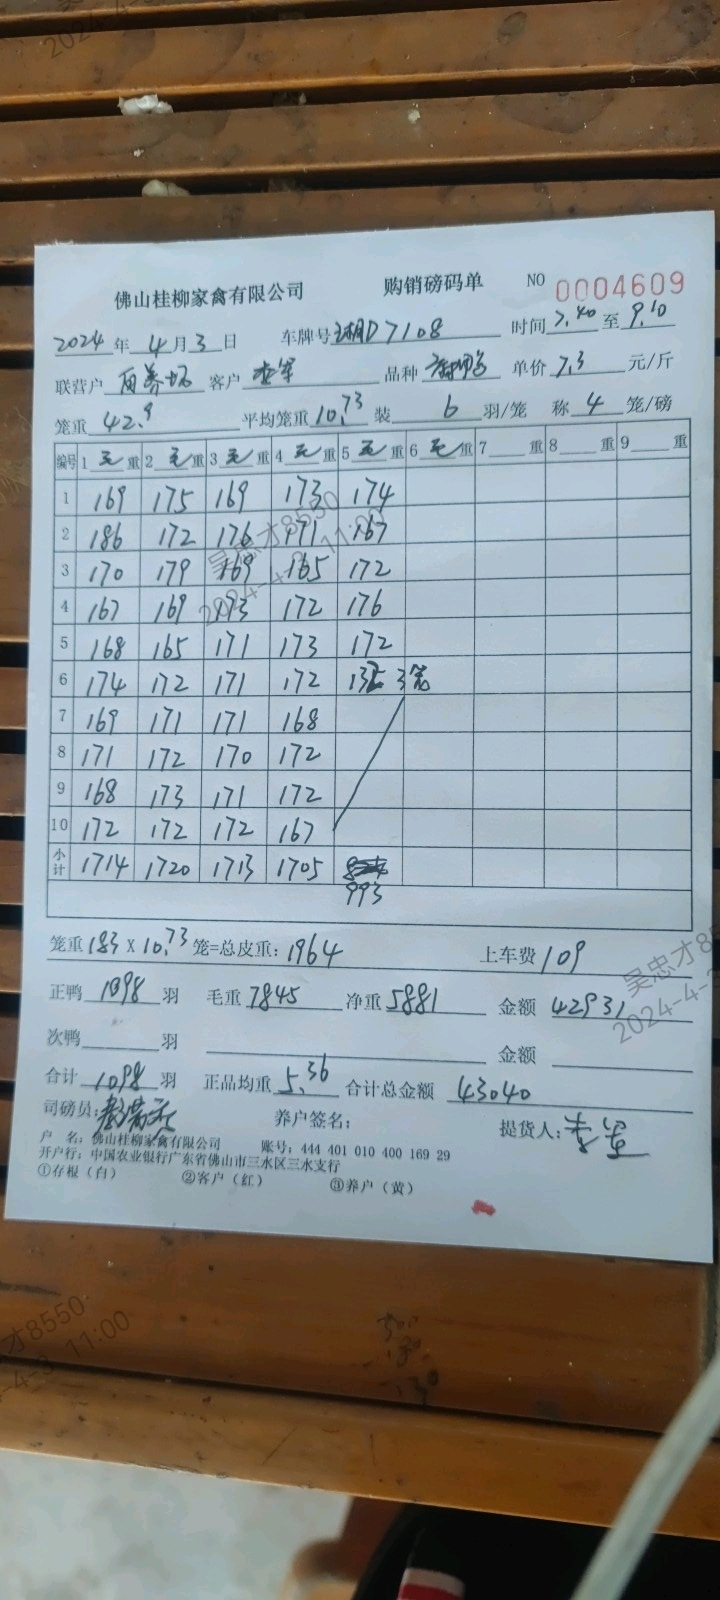 佛山桂柳家禽有限公司 购销磅码单 NO 0004609
2024年4月3日 车牌号 D7108 时间 7.40 至 9.10
联营户 客户 李军 品种 单价 7.3 元/斤
笼重 42.9 平均笼重 10.73 装 6 羽/笼 称 4 笼/磅
编号 1 毛 重 2 毛 重 3 毛 重 4 毛 重 5 毛 重 6 毛 重 7 重 8 重 9 重
1 169 175 169 173 174
2 186 172 176 171 167
3 170 179 169 165 172
4 167 169 193 172 176
5 168 165 171 173 172
6 174 172 171 172 132 3笼
7 169 171 171 168
8 171 172 170 172
9 168 173 171 172
10 172 172 172 167
小计 1714 1720 1713 1705
993
笼重 183 X 10.73 笼=总皮重: 1964 上车费 109
正鸭 1098 羽 毛重 7845 净重 5881 金额 42931
次鸭 羽 金额
合计 1098 羽 正品均重 5.36 合计总金额 43040
司磅员: 养户签名: 提货人: 李军
户 名: 佛山桂柳家禽有限公司 账号: 444 401 010 400 169 29
开户行: 中国农业银行广东省佛山市三水区三水支行
①存根（白） ②客户（红） ③养户（黄）
吴忠才8550
2024-4-3 11:00